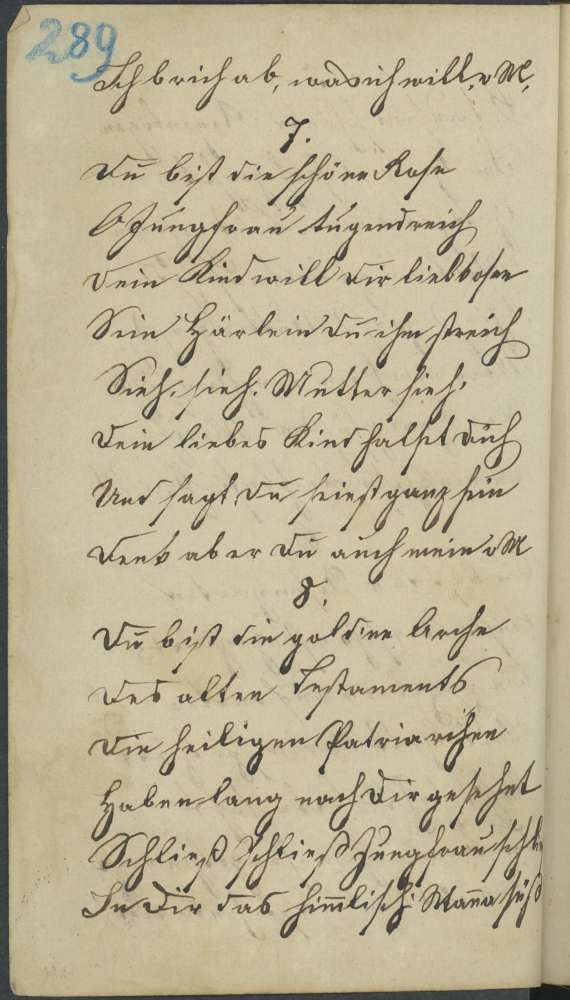 289
Ich brich ab, was ich will, o M,
7.
Du bist die schöne Rose
O Jungfrau tugendreich
Dein Kind will dir liebkosen
Sein Härlein du ihm streich
Sieh, sieh, Mutter sieh,
Dein liebes Kind halset dich
Und sagt, du seiest ganz sein
Denk aber du auch mein o M
8.
Du bist die goldene Arche
Des alten Testaments
Die heiligen Patriarchen
Haben lang nach dir gesehnt
Schließ schließ Jungfrau
In dir das him̄lisch Man̄a süß